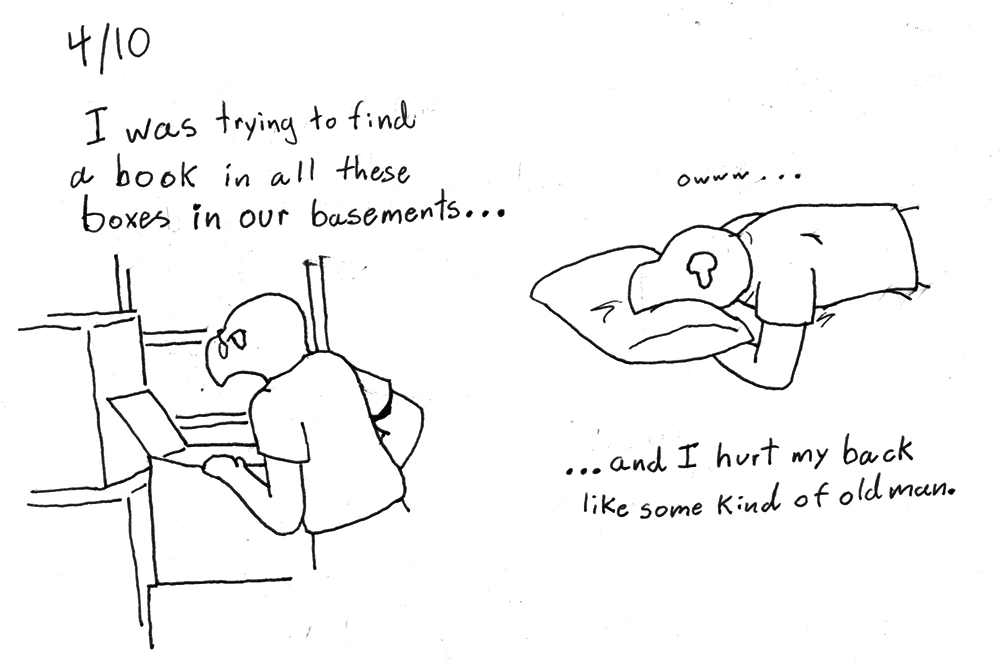 4/10
I was trying to find
a book in all these
boxes in our basements...
owww...
...and I hurt my back
like some kind of old man.